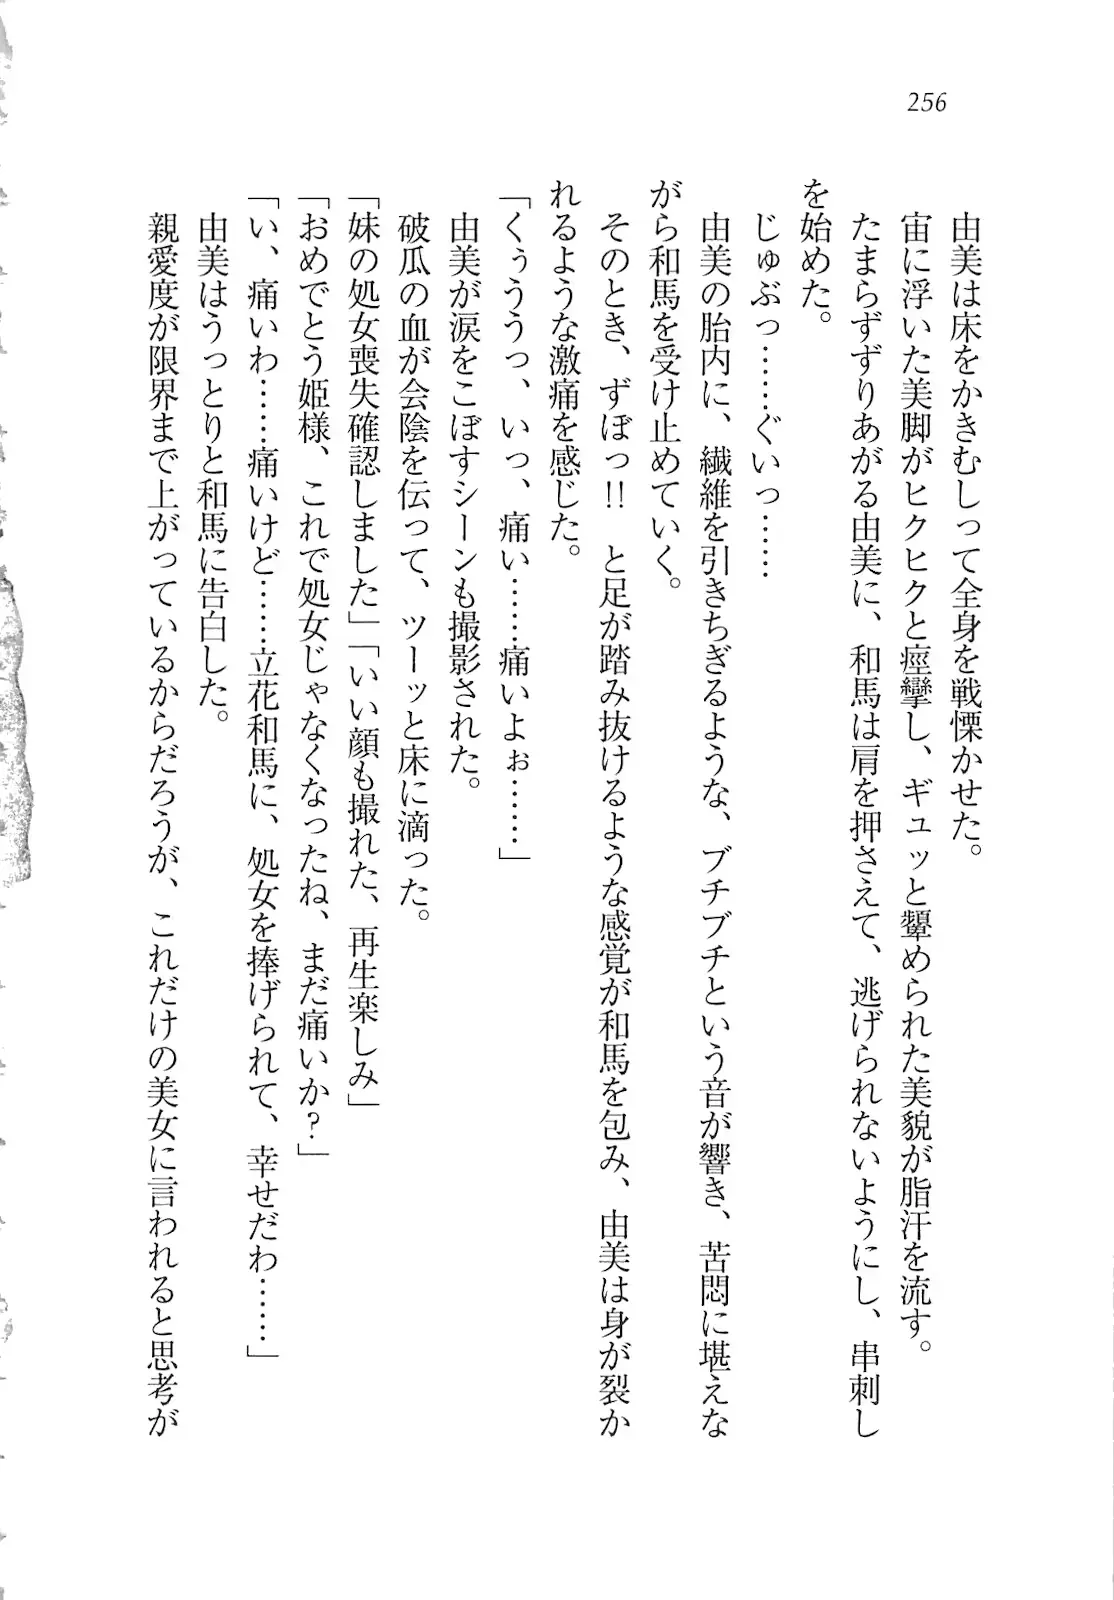 256
由美は床をかきむしって全身を戦慄かせた。
宙に浮いた美脚がヒクヒクと痙攣し、ギュッと顰められた美貌が脂汗を流す。
たまらずずりあがる由美に、和馬は肩を押さえて、逃げられないようにし、串刺し
を始めた。
じゅぶっ……ぐいっ……
由美の胎内に、繊維を引きちぎるような、ブチブチという音が響き、苦悶に堪えな
がら和馬を受け止めていく。
そのとき、ずぼっ!!　と足が踏み抜けるような感覚が和馬を包み、由美は身が裂か
れるような激痛を感じた。
「くぅううっ、いっ、痛い……痛いよぉ……」
由美が涙をこぼすシーンも撮影された。
破瓜の血が会陰を伝って、ツーッと床に滴った。
「妹の処女喪失確認しました」「いい顔も撮れた、再生楽しみ」
「おめでとう姫様、これで処女じゃなくなったね、まだ痛いか?」
「い、痛いわ……痛いけど……立花和馬に、処女を捧げられて、幸せだわ……」
由美はうっとりと和馬に告白した。
親愛度が限界まで上がっているからだろうが、これだけの美女に言われると思考が